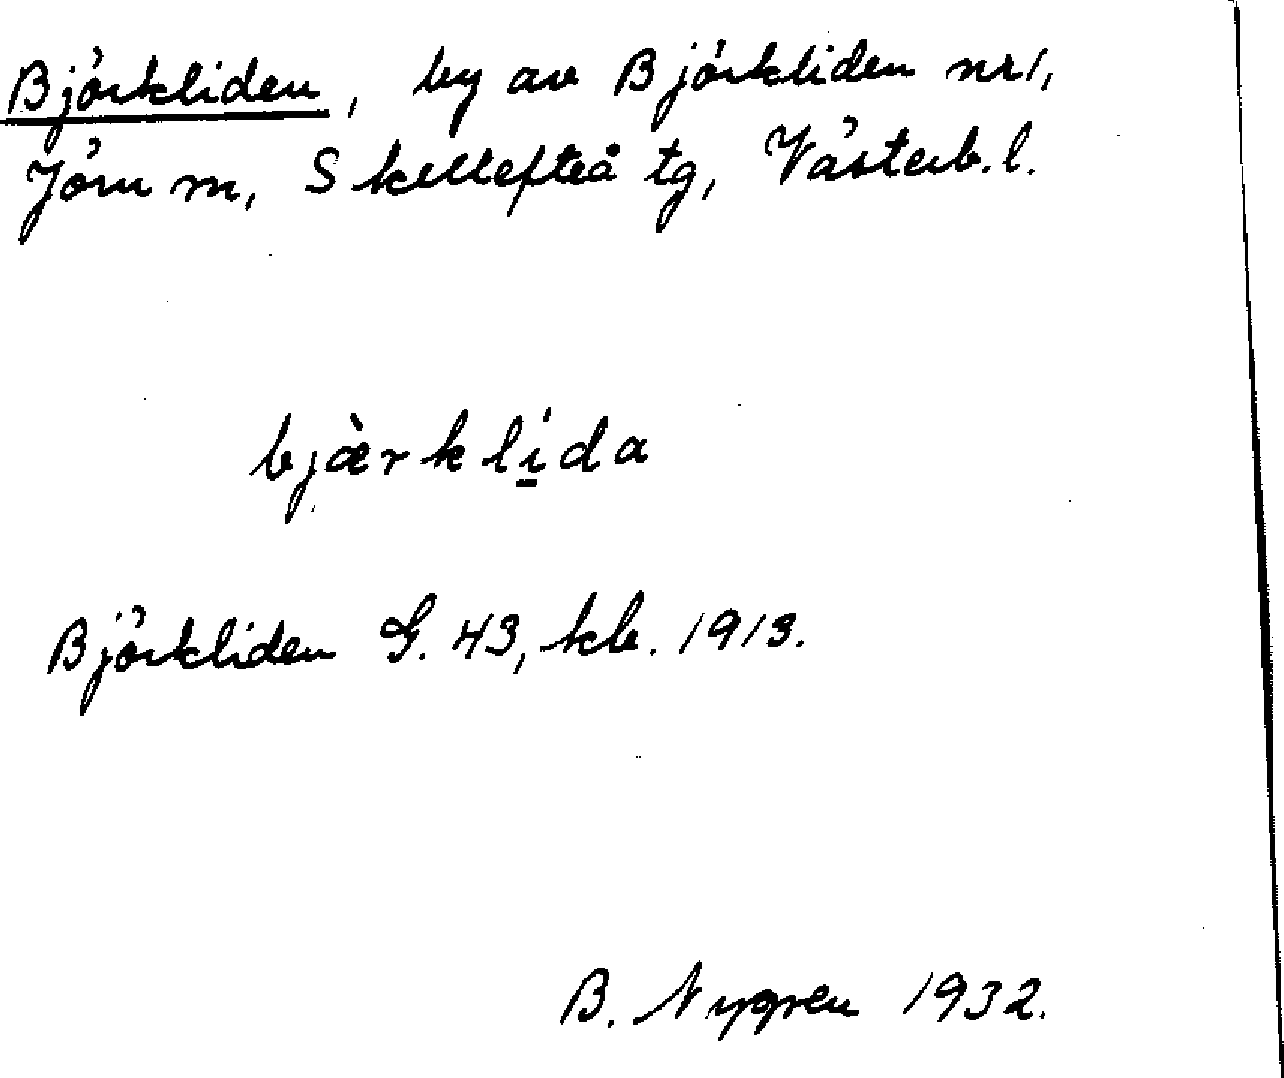 Björkliden, by av Björkliden nr 1,
Jörn sn, Skellefteå tg, Västerb. l.
bjæ̀rkli̠̍da
Björkliden G. 43, kb. 1913.
B. Nygren 1932.